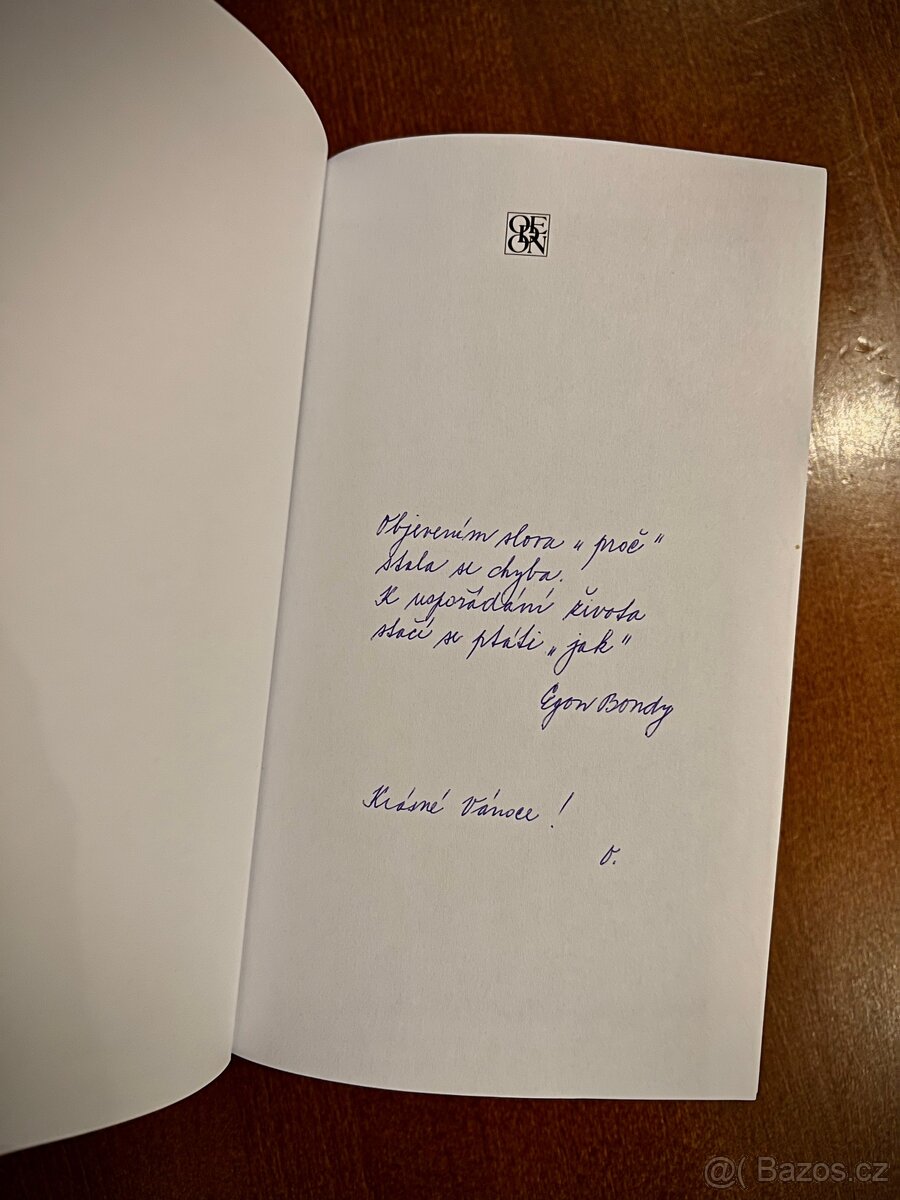 ODEON
Objevením slova „proč“
stala se chyba.
K uspořádání života
stačí se ptáti „jak“
Egon Bondy
Krásné Vánoce!
V.
@( Bazos.cz